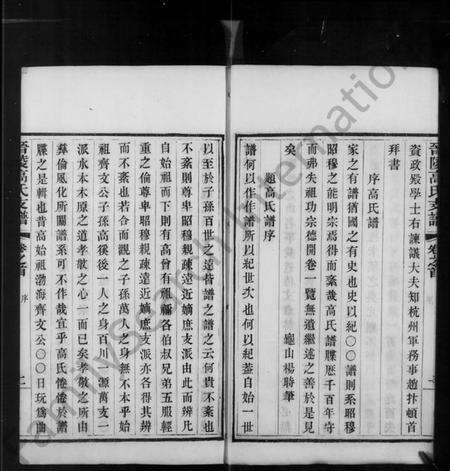 晉陵高氏支譜
卷之首
資政殿學士右諫議大夫知杭州軍務事趙抃頓首
拜書
序高氏譜
家之有譜猶國之有史也史以紀〇〇譜則系昭穆
昭穆之能明宗焉得而紊哉高氏譜牒歷千百年守
而弗失祖功宗德開卷一覽無遺繼述之善於是見
矣 龜山楊時肇
題高氏譜序
譜何以作作所以紀世次也何以紀蓋自始一世
以至於子孫百世之遠皆譜之譜之云何貴不紊也
不紊則尊卑昭穆親疎遠近嫡庶支派由此而辨凡
自始祖而下則有高曾有祖禰各伯叔兄弟五服輕
重之倫尊卑昭穆親疎遠近嫡庶支派亦各得其辨
而不紊也若合而觀之子孫萬人之身無不本乎始
祖齊文公子孫高徯後一人之身百川一源萬支一
派水木本原之道孝敬之心一而已矣孝敬之所由
彝倫風化所關譜系可不作哉宜乎高氏惓惓於譜
牒之是輯也昔高始祖渤海齊文公〇〇日玩爲曲
晉陵高氏支譜
卷之首
序
二
Family Search International